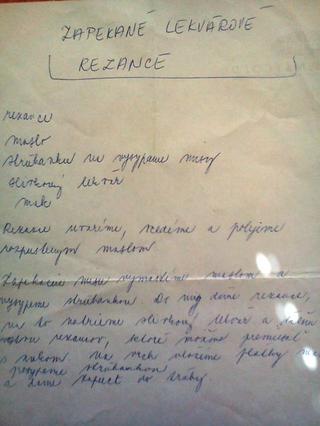 ZAPEKANÉ LEKVÁROVÉ
REZANCE
rezance
maslo
strúhanku na vysypanie misy
slivkový lekvár
mak
Rezance uvaríme, scedíme a polejeme
rozpusteným maslom
Zapekaciu misu vymastíme maslom a
vysypeme strúhankou. Do misy dáme rezance,
na to natrieme slivkový lekvár a ďalšiu
vrstvu rezancov, ktoré môžeme premiešať
s makom. Na vrch uložíme plátky masla
posypeme strúhankou
a dáme zapiecť do trúby.